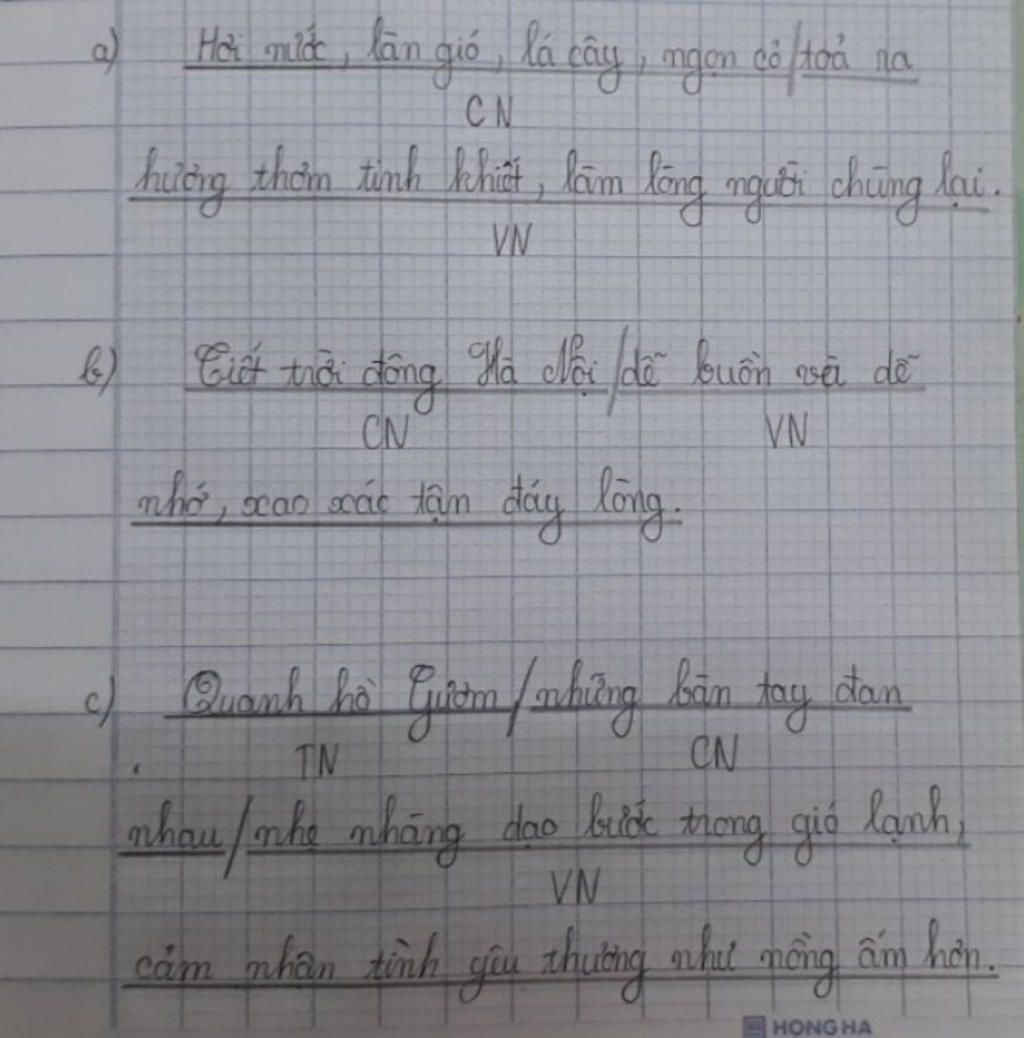 a) Hơi nước, làn gió, lá cây, ngọn cỏ/toả ra
CN
hương thơm tinh khiết, làm lòng người chùng lại.
VN
b) Tiết trời đông Hà Nội/dễ buồn và dễ
CN VN
nhớ, xao xác tận đáy lòng.
c) Quanh hồ Gươm/những bàn tay đan
TN CN
nhau/nhẹ nhàng dạo bước trong gió lạnh,
VN
cảm nhận tình yêu thương như nồng ấm hơn.
HONG HA